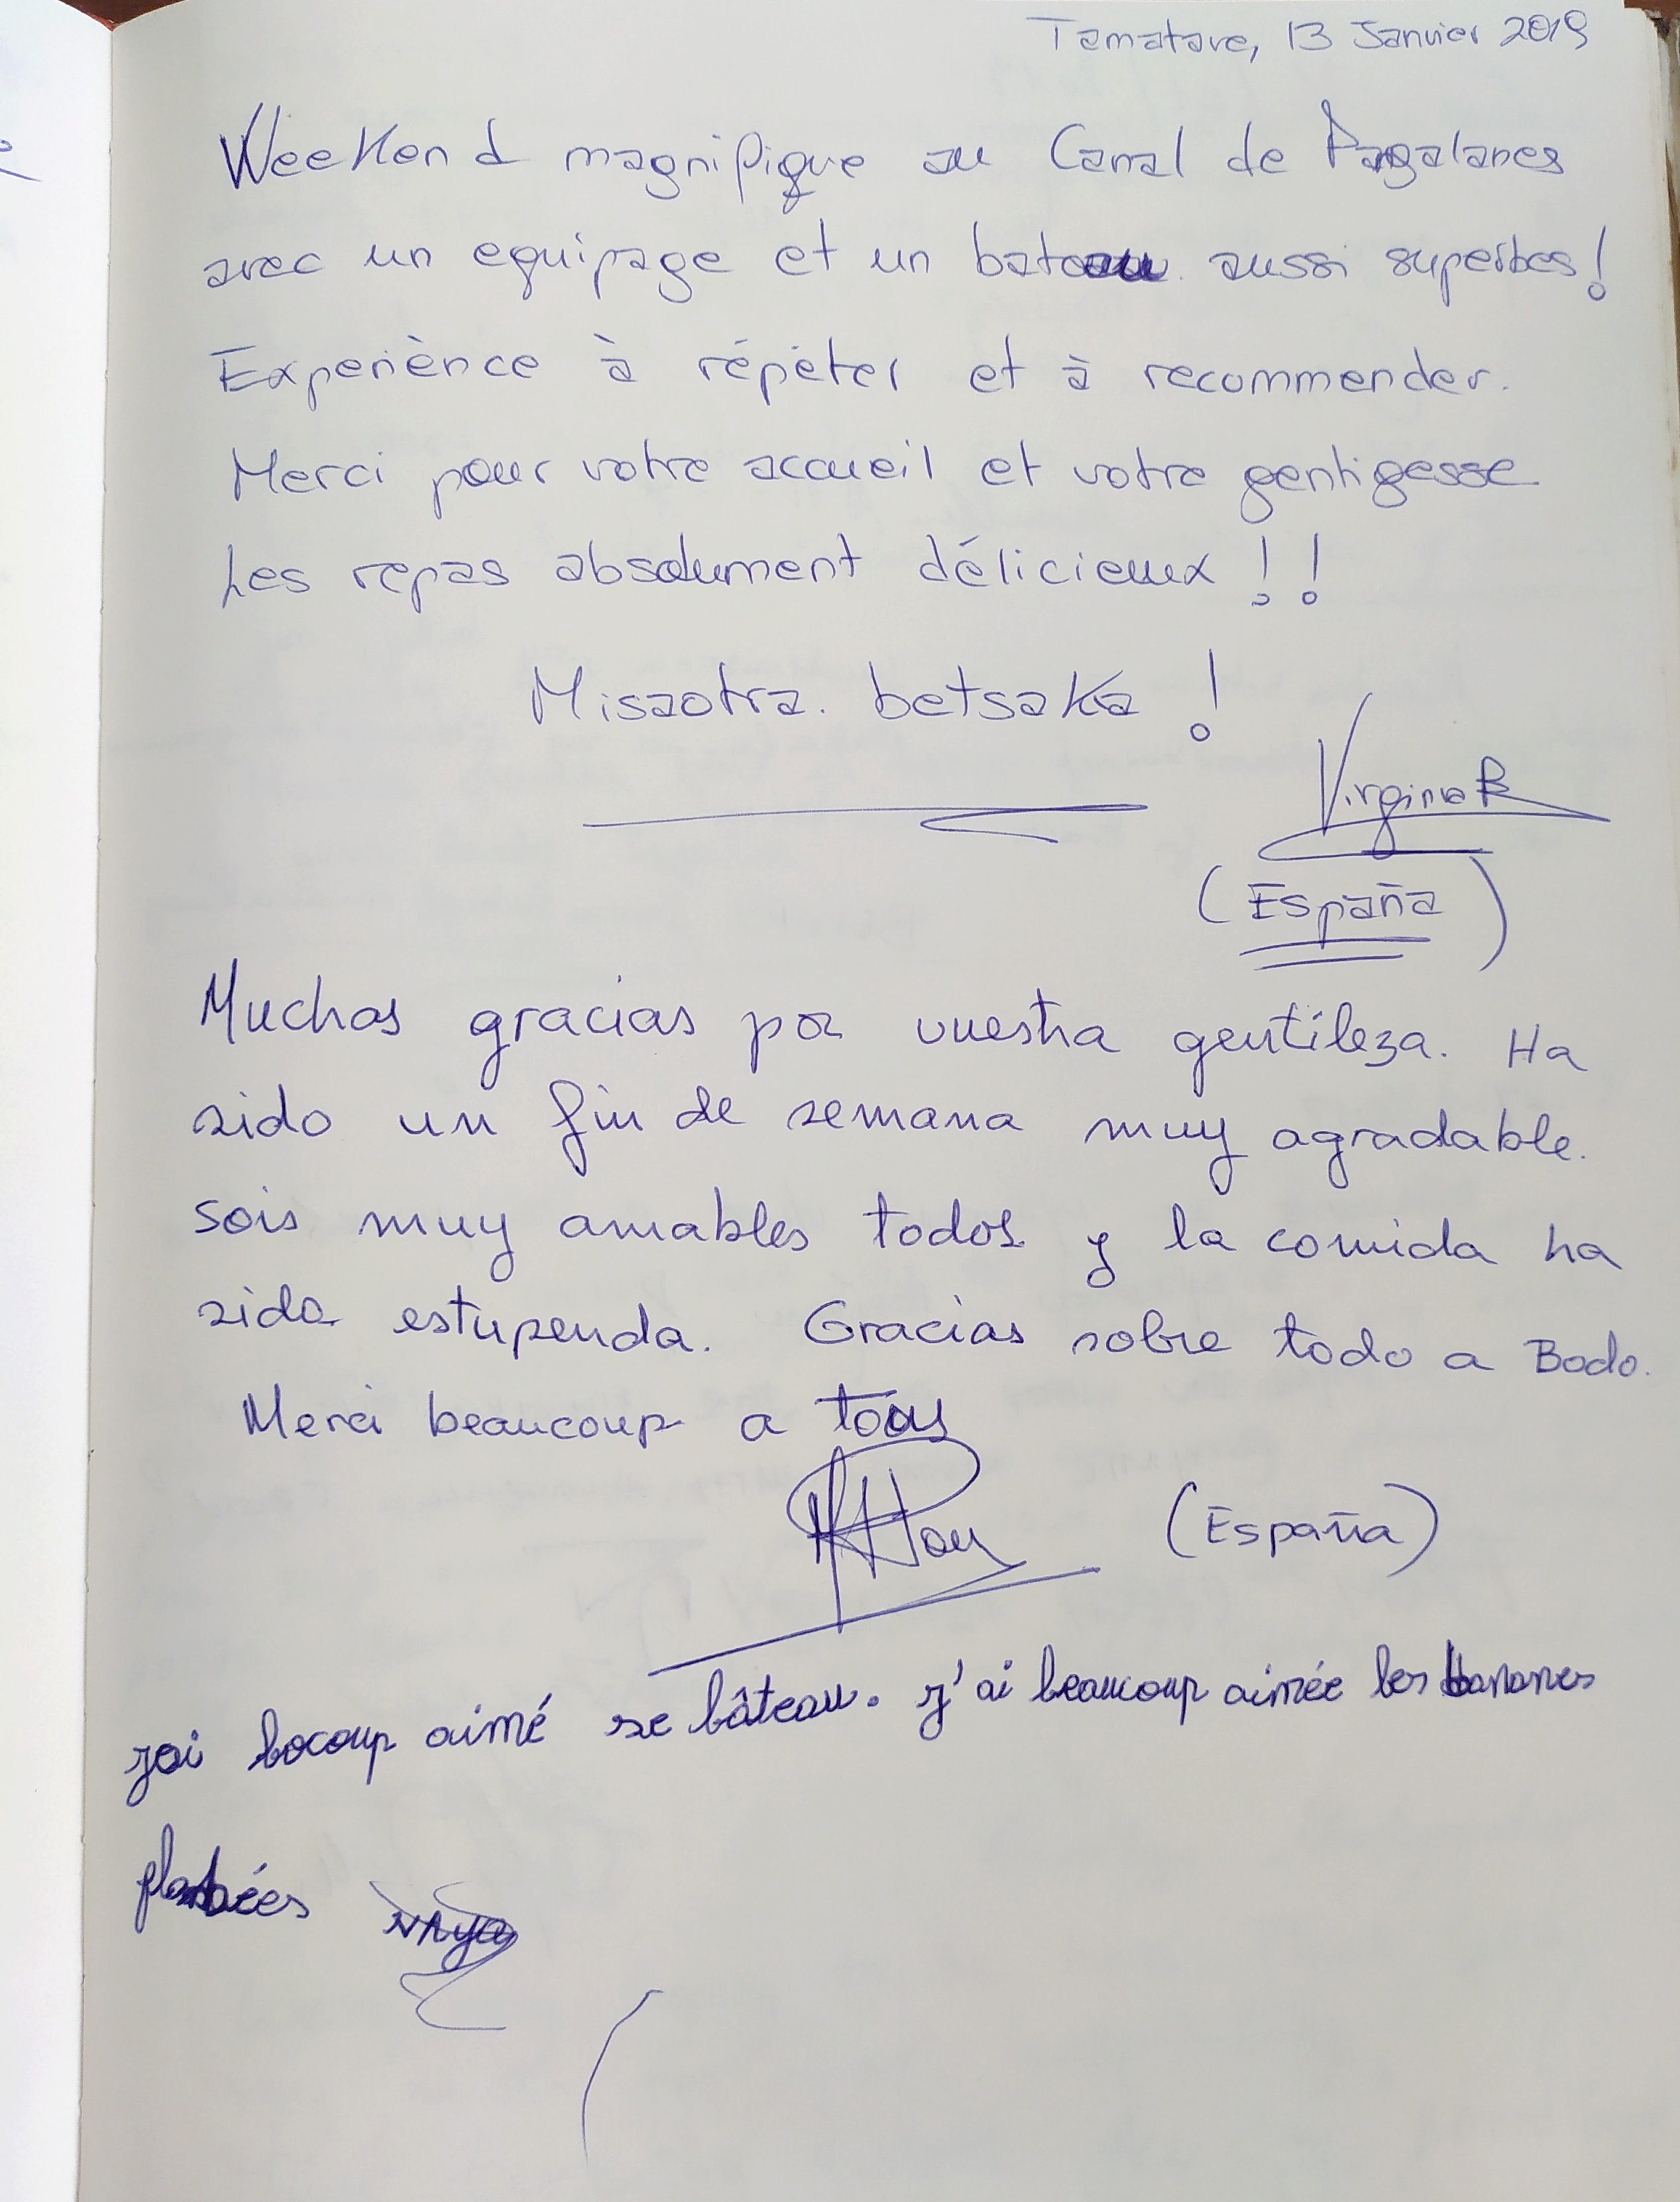 Tamatave, 13 Janvier 2019
Weekend magnifique au Canal de Pangalanes
avec un equipage et un bateau aussi superbes!
Experiènce à répéter et à recommender.
Merci pour votre accueil et votre gentigesse
Les repas absolument délicieux!!
Misaotra. betsaka!
Virginia R
(España)
Muchas gracias por vuestra gentileza. Ha
sido un fin de semana muy agradable.
Sois muy amables todos y la comida ha
sido estupenda. Gracias sobre todo a Bodo.
Merci beaucoup a tous
(España)
jai bocoup aimé se bâteau. j'ai beaucoup aimée les bananes